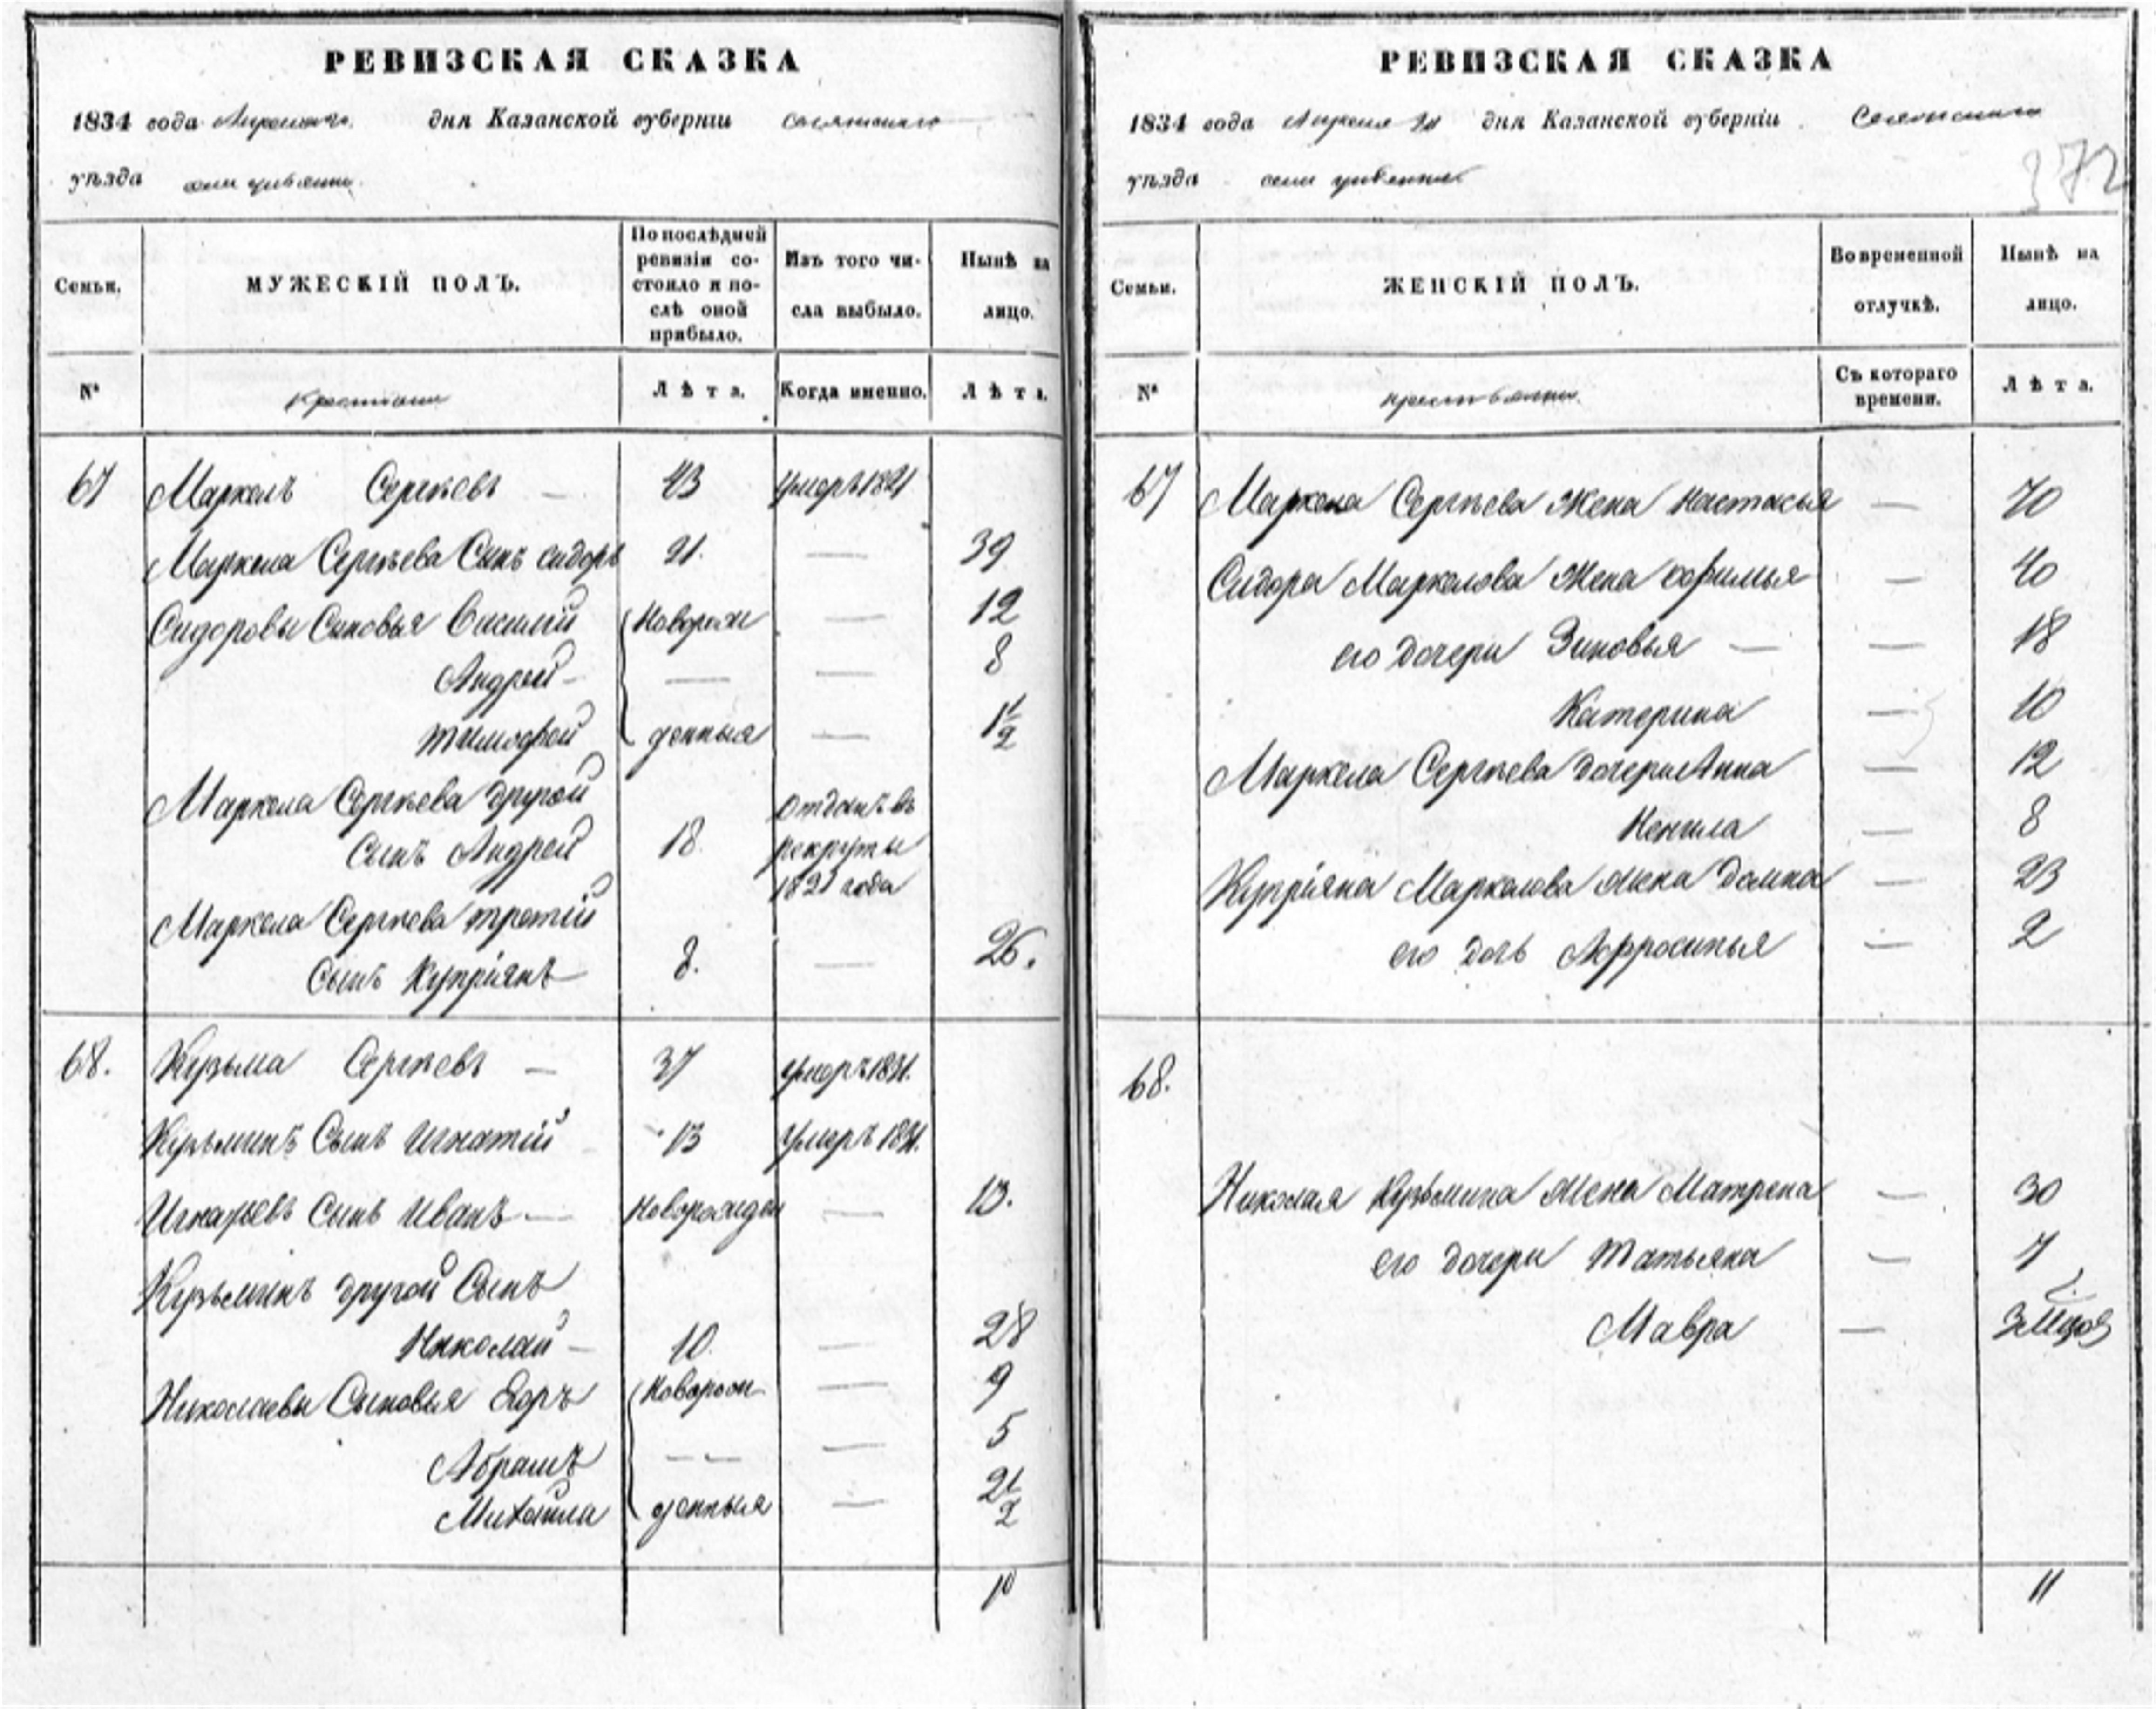 РЕВИЗСКАЯ СКАЗКА
1834 года Апреля дня Казанской губерніи
уѣзда
Семьи.
МУЖЕСКІЙ ПОЛЪ.
По послѣдней
ревизіи со-
стояло и по-
слѣ оной
прибыло.
Изъ того чи-
сла выбыло.
Нынѣ на
лицо.
№
Крестьяне
Лѣта.
Когда именно.
Лѣта.
67 Маркелъ Сергѣевъ — 43 умеръ 1821
Маркела Сергѣева Сынъ Сидоръ 21. — 39
Сидоровы Сыновья Василій Новорож — 12
Андрей — — — 8
Тимофей денныя — 1 1/2
Маркела Сергѣева другой
Сынъ Андрей 18. Отданъ въ
рекруты
182 года
Маркела Сергѣева третій
Сынъ Купріянъ 8. — 26.
68. Кузьма Сергѣевъ — 37 умеръ 1831.
Кузьминъ Сынъ Игнатій 13 Умеръ 1831.
Игнатьевъ Сынъ Иванъ — Новорожден — 13.
Кузьминъ другой Сынъ
Николай — 10. — 28
Николаевы Сыновья Егоръ Новорож — 9
Абрамъ — — — 5
Михайла денныя — 2 1/2
10
РЕВИЗСКАЯ СКАЗКА
1834 года Апреля дня Казанской губерніи
уѣзда
372
Семьи.
ЖЕНСКІЙ ПОЛЪ.
Во временной
отлучкѣ.
Нынѣ на
лицо.
№
крестьянки
Съ котораго
времени.
Лѣта.
67 Маркела Сергѣева Жена Настасья — 70
Сидора Маркелова Жена Софимья — 40
его дочери Зиновья — — 18
Катерина — 10
Маркела Сергѣева дочери Анна — 12
Ненила — 8
Купріяна Маркелова Жена Домна — 23
его дочь Афросинья — 2
68.
Николая Кузьмина Жена Матрена — 30
его дочери Татьяна — 7
Мавра — 3 мцов
11